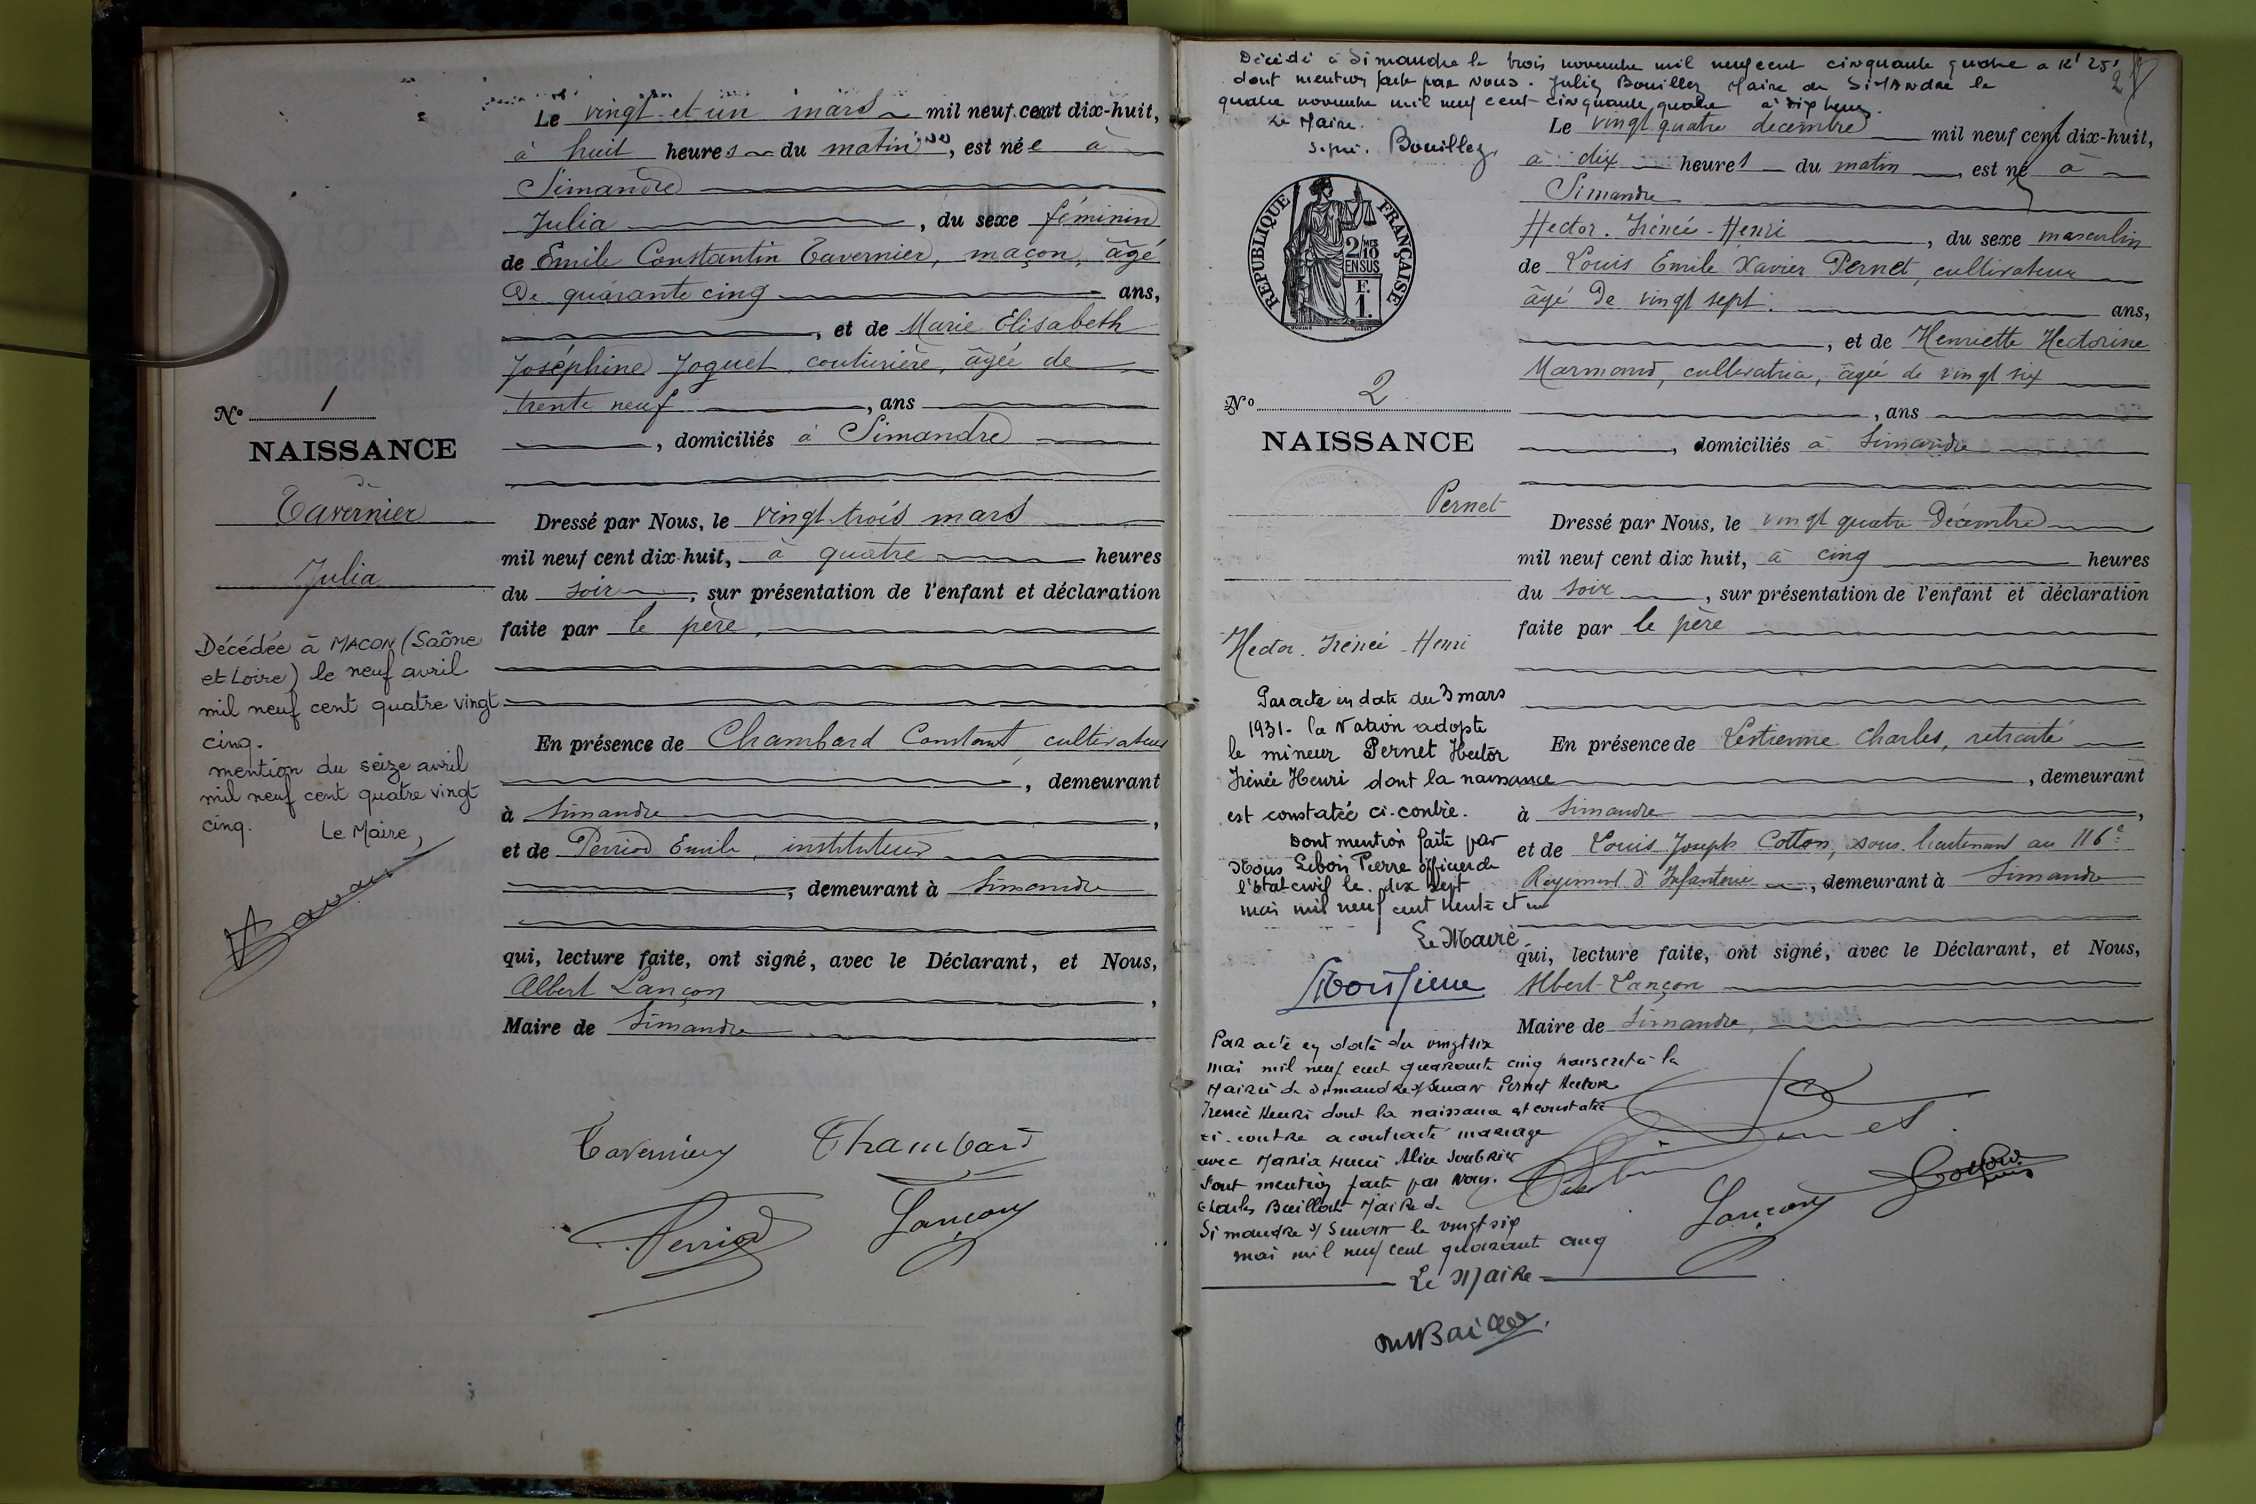 Le vingt et un mars mil neuf cent dix-huit,
à huit heures du matin, est née à
Simandre
Julia, du sexe féminin
de Emile Constantin Tavernier, maçon, âgé
de quarante cinq ans,
, et de Marie Elisabeth
Joséphine Joguet, couturière, âgée de
trente neuf, ans
, domiciliés à Simandre
N° 1
NAISSANCE
de
Tavernier
Julia
Dressé par Nous, le vingt-trois mars
mil neuf cent dix-huit, à quatre heures
du soir, sur présentation de l'enfant et déclaration
faite par le père,
Décédée à MACON (Saône
et Loire) le neuf avril
mil neuf cent quatre vingt
cinq.
mention du seize avril
mil neuf cent quatre vingt
cinq. Le Maire,
En présence de Chambard Constant, cultivateur
, demeurant
à Simandre,
et de Perriod Emile, instituteur
, demeurant à Simandre
qui, lecture faite, ont signé, avec le Déclarant, et Nous,
Albert Lançon,
Maire de Simandre
Tavernier Chambard
Perriod Lançon
Décédé à Simandre le trois novembre mil neuf cent cinquante quatre a
dont mention faite par nous. Julien Bouillez Maire de SIMANDRE le
quatre novembre mil neuf cent cinquante quatre à dix heures.
Le Maire.
Signé. Bouillez.
2
RÉPUBLIQUE FRANÇAISE
2/10
MES
EN SUS
F.
1.
N° 2
NAISSANCE
Pernet
Hector. Irénée-Henri
Le vingt quatre décembre mil neuf cent dix-huit,
à dix heures du matin, est né à
Simandre
Hector. Irénée-Henri, du sexe masculin
de Louis Emile Xavier Pernet, cultivateur
âgé de vingt sept. ans,
, et de Henriette Hectorine
Marmand, cultivatrice, âgée de vingt six
, ans
, domiciliés à Simandre
Dressé par Nous, le vingt quatre Décembre
mil neuf cent dix huit, à cinq heures
du soir, sur présentation de l'enfant et déclaration
faite par le père
Par acte en date du 3 mars
1931. la Nation adopte
le mineur Pernet Hector
Irénée Henri dont la naissance
est constatée ci-contre.
Dont mention faite par
Nous Lebois Pierre officier de
l'Etat civil le dix sept
mai mil neuf cent trente et un
Le Maire
En présence de Lestienne Charles, retraité
, demeurant
à Simandre,
et de Louis Joseph Cotton, sous-lieutenant au 116e
Régiment d'Infanterie, demeurant à Simandre
qui, lecture faite, ont signé, avec le Déclarant, et Nous,
Albert Lançon
Maire de Simandre,
Par acte en date du vingt six
mai mil neuf cent quarante cinq transcrit à la
Mairie de Simandre s/Suran Pernet Hector
Irenée Henri dont la naissance est constatée
ci-contre a contracté mariage
avec Maria Alice
Dont mention faite par Nous.
Charles Maire de
Simandre s/ Suran le vingt six
mai mil neuf cent quarante cinq
Le Maire
Pernet
Lançon Cotton